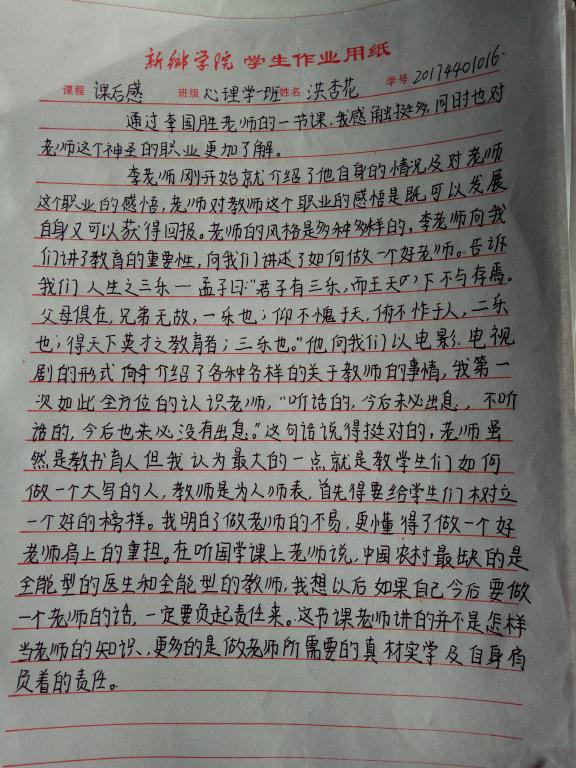 新乡学院 学生作业用纸
课程 课后感 班级 心理学一班 姓名 洪杏花 学号 20174401016.
通过李国胜老师的一节课,我感触挺多,同时也对
老师这个神圣的职业更加了解。
李老师刚开始就介绍了他自身的情况及对老师
这个职业的感悟,老师对教师这个职业的感悟是既可以发展
自身又可以获得回报。老师的风格是多种多样的,李老师向我
们讲了教育的重要性,向我们讲述了如何做一个好老师。告诉
我们人生之三乐一孟子曰:“君子有三乐,而王天の下不与存焉。
父母俱在,兄弟无故,一乐也;仰不愧于天,俯不怍于人,二乐
也;得天下英才之教育者;三乐也。”他向我们以电影、电视
剧的形式介绍了各种各样的关于教师的事情,我第一
次如此全方位的认识老师,“听话的,今后未必出息,不听
话的,今后也未必没有出息。”这句话说得挺对的,老师虽
然是教书育人但我认为最大的一点就是教学生们如何
做一个大写的人,教师是为人师表,首先得要给学生们树立
一个好的榜样。我明白了做老师的不易,更懂得了做一个好
老师肩上的重担。在听国学课上老师说,中国农村最缺的是
全能型的医生和全能型的教师,我想以后如果自己今后要做
一个老师的话,一定要负起责任来。这节课老师讲的并不是怎样
当老师的知识,更多的是做老师所需要的真材实学及自身肩
负着的责任。